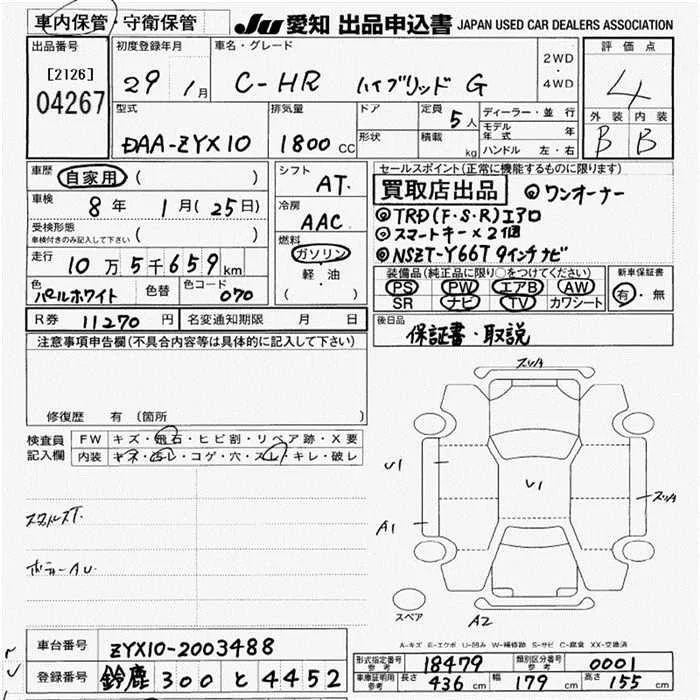 車内保管・守衛保管 JU 愛知 出品申込書 JAPAN USED CAR DEALERS ASSOCIATION
出品番号 初度登録年月 車名・グレード 評価点
[2126] 04267 29 1月 C-HR ハイブリッド G 2WD・4WD 4
型式 排気量 ドア 定員 5人 ディーラー・並行 外装 内装
DAA-ZYX10 1800CC 形状 積載 kg モデル年式 年 ハンドル 左・右 B B
車歴 自家用 ( ) シフト AT. セールスポイント(正常に機能するものに限ります)
買取店出品 ◎ワンオーナー
車検 8年 1月(25日) 冷房 AAC ◎TRD(F・S・R)エアロ
受検形態 車検付きのみ記入して下さい ( ) 燃料 ガソリン ◎スマートキー×2個
走行 10万5千659km 軽・油 ( ) ◎NSZT-Y66T 9インチナビ
色 パールホワイト 色替 色コード 070 装備品(純正品に限り○をつけてください) 新車保証書
PS PW エアB AW 有・無
SR ナビ TV カワシート
R券 11270円 名変通知期限 月 日 後日品
注意事項申告欄(不具合内容等は具体的に記入して下さい) 保証書・取説
修復歴 有 (箇所
検査員記入欄 FW キズ・飛石・ヒビ割・リペア跡・X要
内装 キズ・汚レ・コゲ・穴・スレ・キレ・破レ
スリキズ
U1 U1 スリキズ
A1
ボディーAU.
スペア A2
A-キズ E-エクボ U-凹み W-補修跡 S-サビ C-腐食 XX-交換済
車台番号 ZYX10-2003488
登録番号 鈴鹿 300 と 4452
形式指定番号 参考 18479 類別区分番号 参考 0001
車庫証明用 参考 長さ 436cm 幅 179cm 高さ 155cm